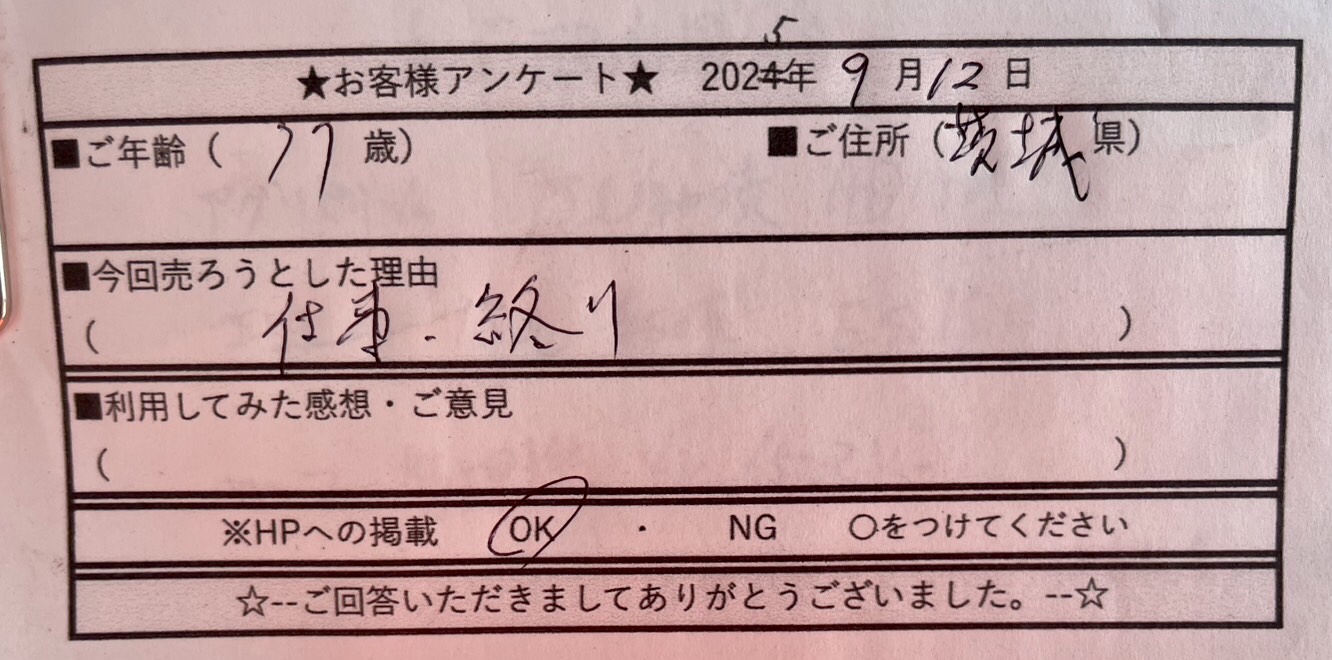 ★お客様アンケート★ 2025年 9月12日
■ご年齢( 77 歳) ■ご住所(茨城県)
■今回売ろうとした理由
( 仕事.終り )
■利用してみた感想・ご意見
( )
※HPへの掲載 OK ・ NG ○をつけてください
☆--ご回答いただきましてありがとうございました。--☆